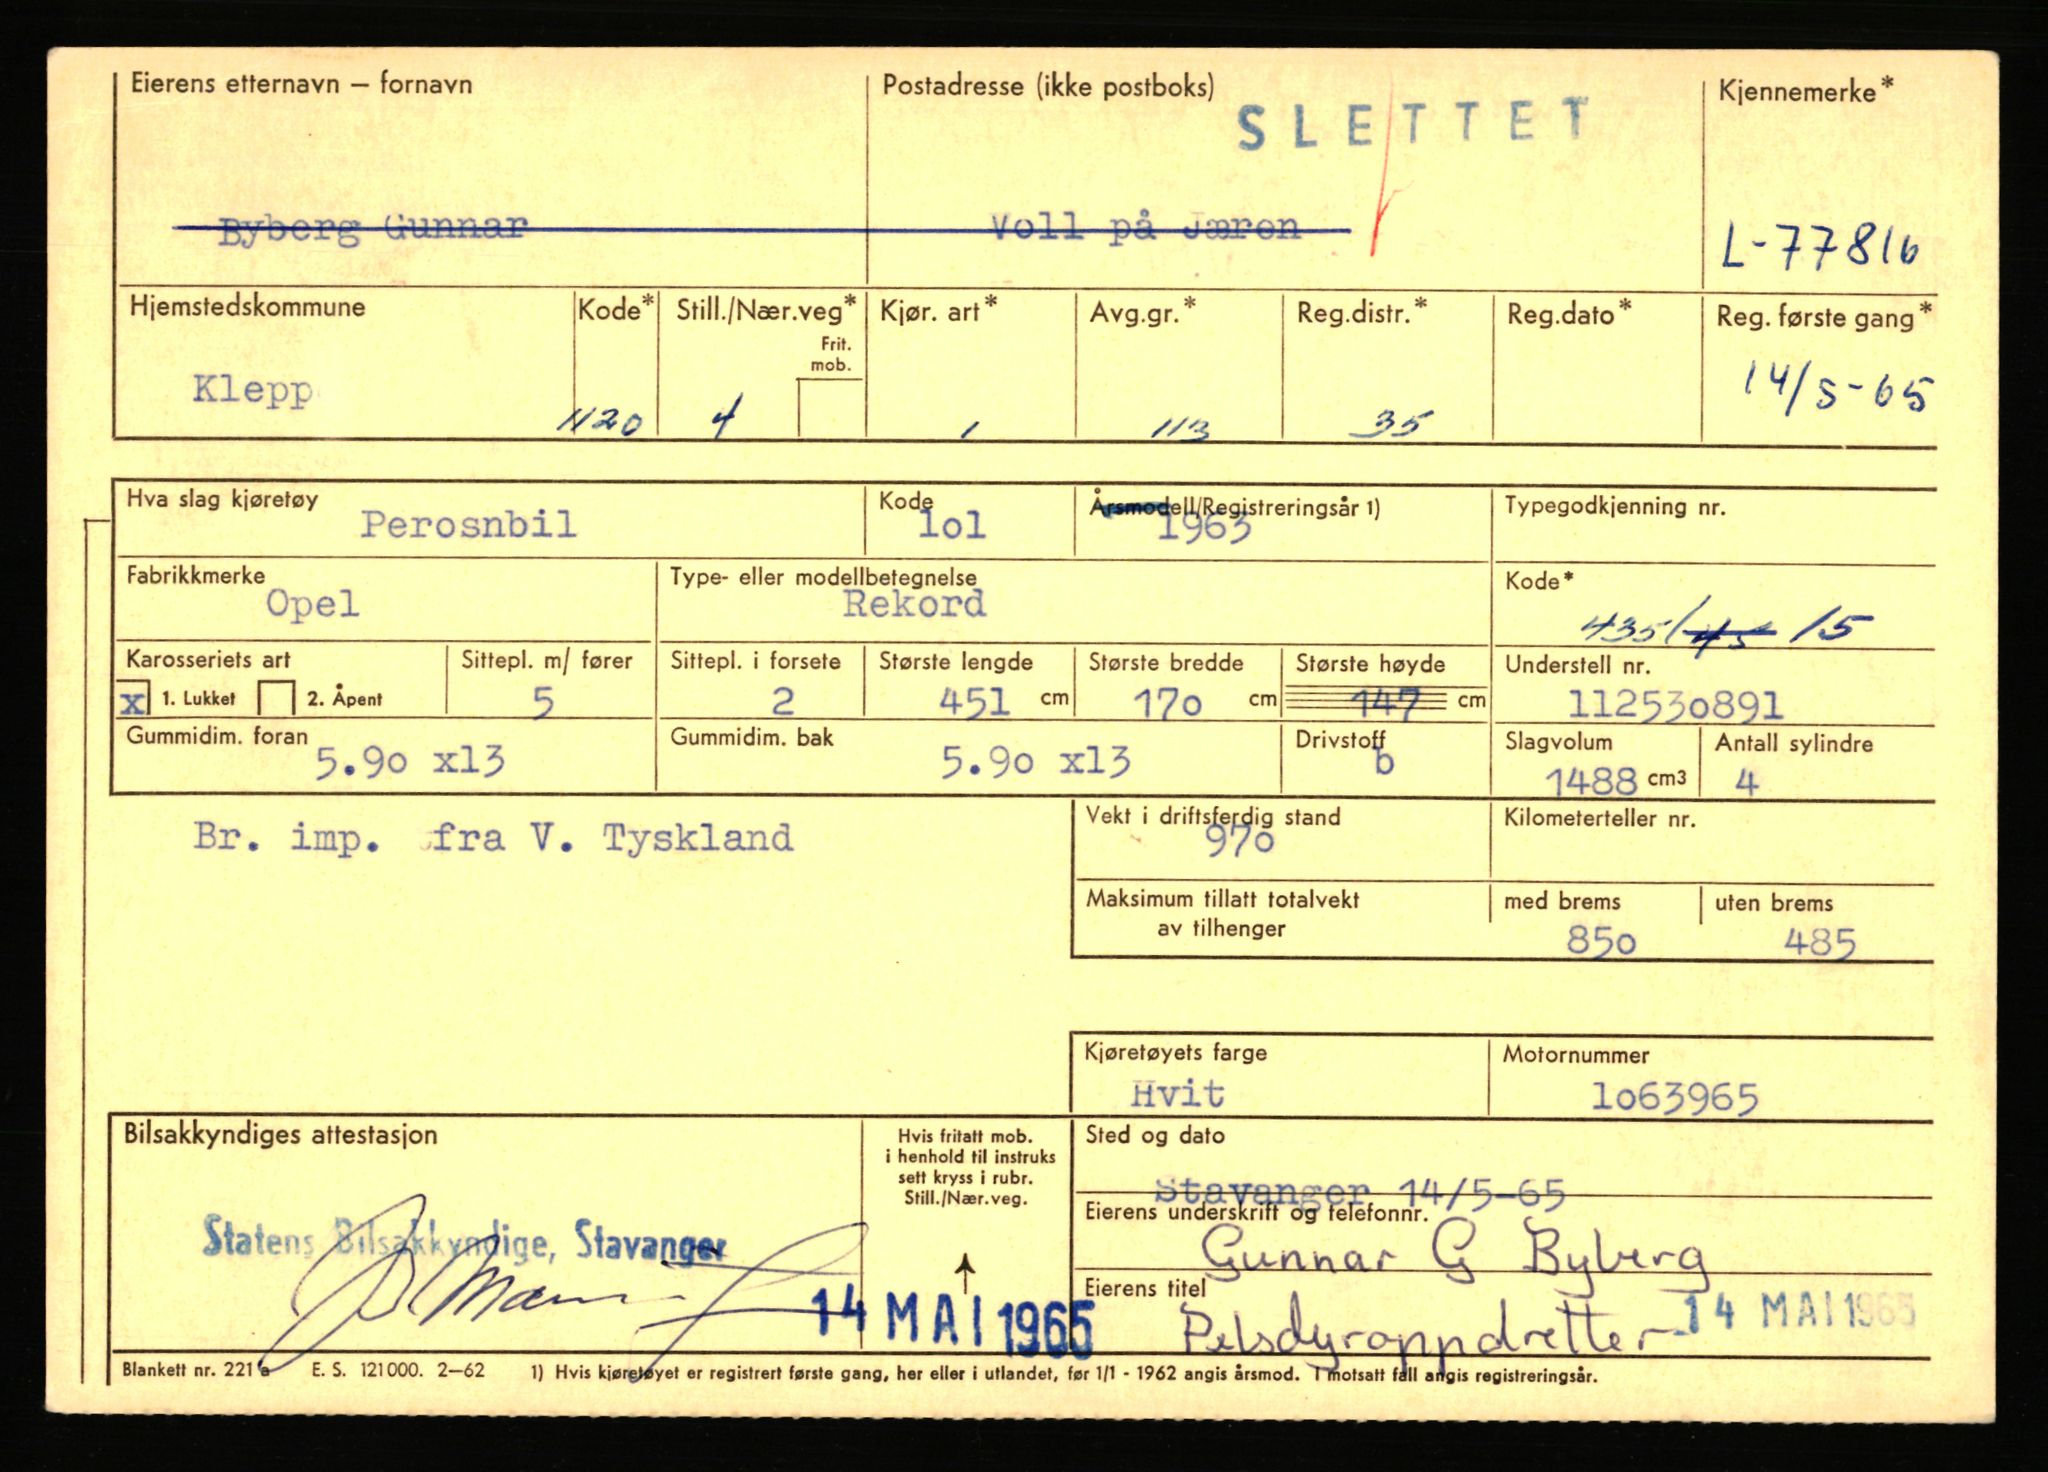 Eierens etternavn – fornavn
Postadresse (ikke postboks)
Kjennemerke*
SLETTET
Byberg Gunnar
Voll på Jæren
L-77816
Hjemstedskommune
Kode*
Still./Nær.veg*
Frit.
mob.
Kjør. art*
Avg.gr.*
Reg.distr.*
Reg.dato*
Reg. første gang*
Klepp
1120
4
1
113
35
14/5-65
Hva slag kjøretøy
Perosnbil
Kode
lol
Årsmodell/Registreringsår 1)
1963
Typegodkjenning nr.
Fabrikkmerke
Opel
Type- eller modellbetegnelse
Rekord
Kode*
435/45 15
Karosseriets art
x 1. Lukket 2. Åpent
Sittepl. m/ fører
5
Sittepl. i forsete
2
Største lengde
451 cm
Største bredde
170 cm
Største høyde
147 cm
Understell nr.
112530891
Gummidim. foran
5.90 x13
Gummidim. bak
5.90 x13
Drivstoff
b
Slagvolum
1488 cm3
Antall sylindre
4
Br. imp. fra V. Tyskland
Vekt i driftsferdig stand
970
Kilometerteller nr.
Maksimum tillatt totalvekt
av tilhenger
med brems
850
uten brems
485
Kjøretøyets farge
Hvit
Motornummer
1063965
Bilsakkyndiges attestasjon
Statens Bilsakkyndige, Stavanger
14 MAI 1965
Hvis fritatt mob.
i henhold til instruks
sett kryss i rubr.
Still./Nær.veg.
Sted og dato
Stavanger 14/5-65
Eierens underskrift og telefonnr.
Gunnar G Byberg
Eierens titel
Pelsdyroppdretter
14 MAI 1965
Blankett nr. 221 a E. S. 121000. 2–62 1) Hvis kjøretøyet er registrert første gang, her eller i utlandet, før 1/1 - 1962 angis årsmod. I motsatt fall angis registreringsår.